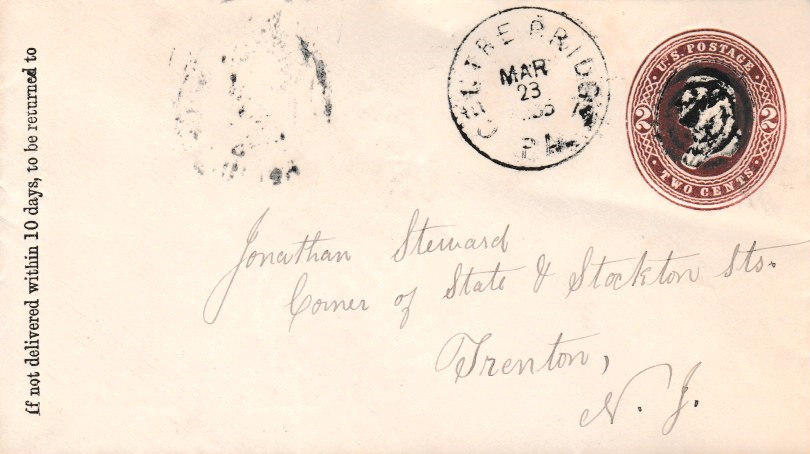 If not delivered within 10 days, to be returned to
CENTRE BRIDGE
MAR
23
PA.
U.S. POSTAGE
2 2
TWO CENTS
Jonathan Steward
Corner of State & Stockton Sts.
Trenton,
N. J.